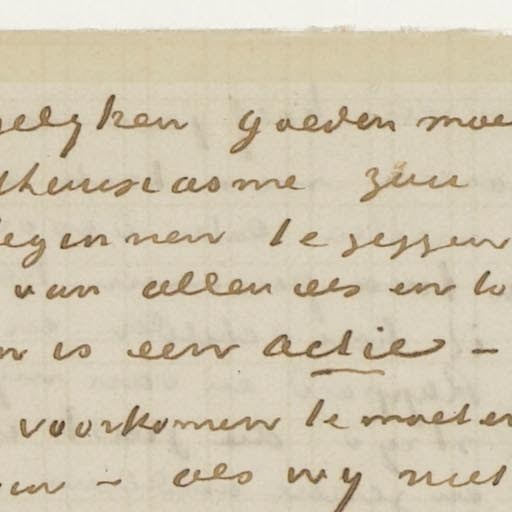 gelyken goeden moe
thousiasme zou
beginnen te zeggen
van alleu als en to
n is een actie -
voorkomen te moeten
en - als wy niet